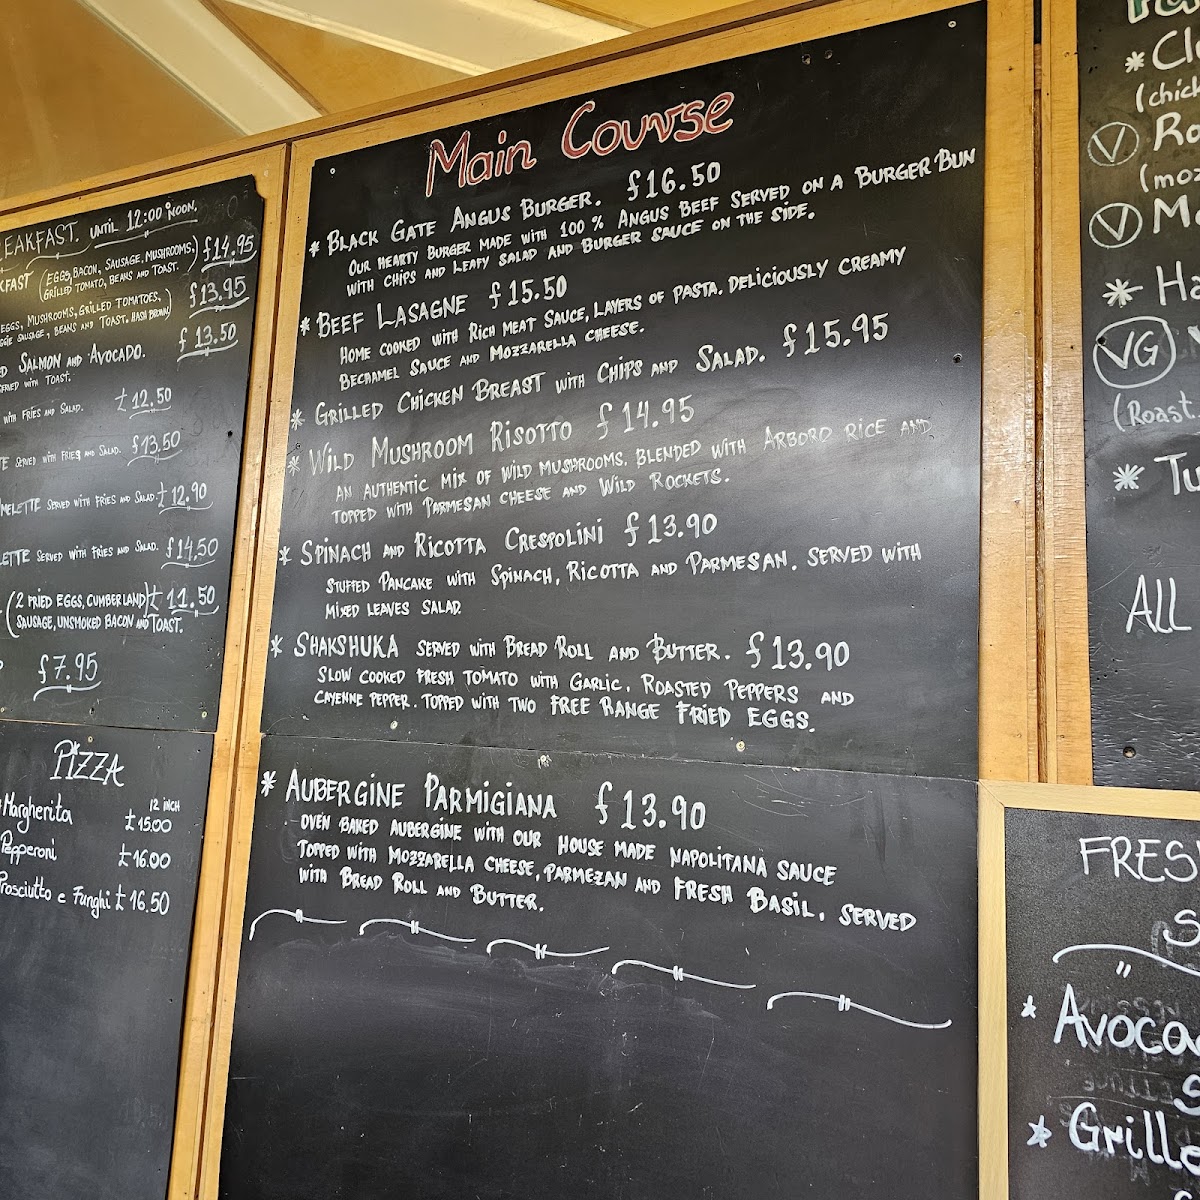 EAKFAST. UNTIL 12:00 NOON.
KFAST (EGGS, BACON, SAUSAGE, MUSHROOMS, £14.95
GRILLED TOMATO, BEANS AND TOAST.)
EGGS, MUSHROOMS, GRILLED TOMATOES, £13.95
GIE SAUSAGE, BEANS AND TOAST. HASH BROWN)
SALMON AND AVOCADO. £13.50
SERVED WITH TOAST.
WITH FRIES AND SALAD. £12.50
SERVED WITH FRIES AND SALAD. £13.50
MELETTE SERVED WITH FRIES AND SALAD. £12.90
LETTE SERVED WITH FRIES AND SALAD. £14.50
(2 FRIED EGGS, CUMBERLAND £11.50
SAUSAGE, UNSMOKED BACON AND TOAST.
£7.95
PIZZA
12 INCH
Margherita £15.00
Pepperoni £16.00
Prosciutto e Funghi £16.50
Main Course
* BLACK GATE ANGUS BURGER. £16.50
OUR HEARTY BURGER MADE WITH 100% ANGUS BEEF SERVED ON A BURGER BUN
WITH CHIPS AND LEAFY SALAD AND BURGER SAUCE ON THE SIDE.
* BEEF LASAGNE £15.50
HOME COOKED WITH RICH MEAT SAUCE, LAYERS OF PASTA. DELICIOUSLY CREAMY
BECHAMEL SAUCE AND MOZZARELLA CHEESE.
* GRILLED CHICKEN BREAST WITH CHIPS AND SALAD. £15.95
* WILD MUSHROOM RISOTTO £14.95
AN AUTHENTIC MIX OF WILD MUSHROOMS. BLENDED WITH ARBORO RICE AND
TOPPED WITH PARMESAN CHEESE AND WILD ROCKETS.
* SPINACH AND RICOTTA CRESPOLINI £13.90
STUFFED PANCAKE WITH SPINACH, RICOTTA AND PARMESAN. SERVED WITH
MIXED LEAVES SALAD
* SHAKSHUKA SERVED WITH BREAD ROLL AND BUTTER. £13.90
SLOW COOKED FRESH TOMATO WITH GARLIC, ROASTED PEPPERS AND
CAYENNE PEPPER. TOPPED WITH TWO FREE RANGE FRIED EGGS.
* AUBERGINE PARMIGIANA £13.90
OVEN BAKED AUBERGINE WITH OUR HOUSE MADE NAPOLITANA SAUCE
TOPPED WITH MOZZARELLA CHEESE, PARMEZAN AND FRESH BASIL. SERVED
WITH BREAD ROLL AND BUTTER.
* Cl
(chick
V Ro
(moz
V M
* Ha
VG
(Roast
* Tu
ALL
FRES
S
* Avoca
S
* Grille